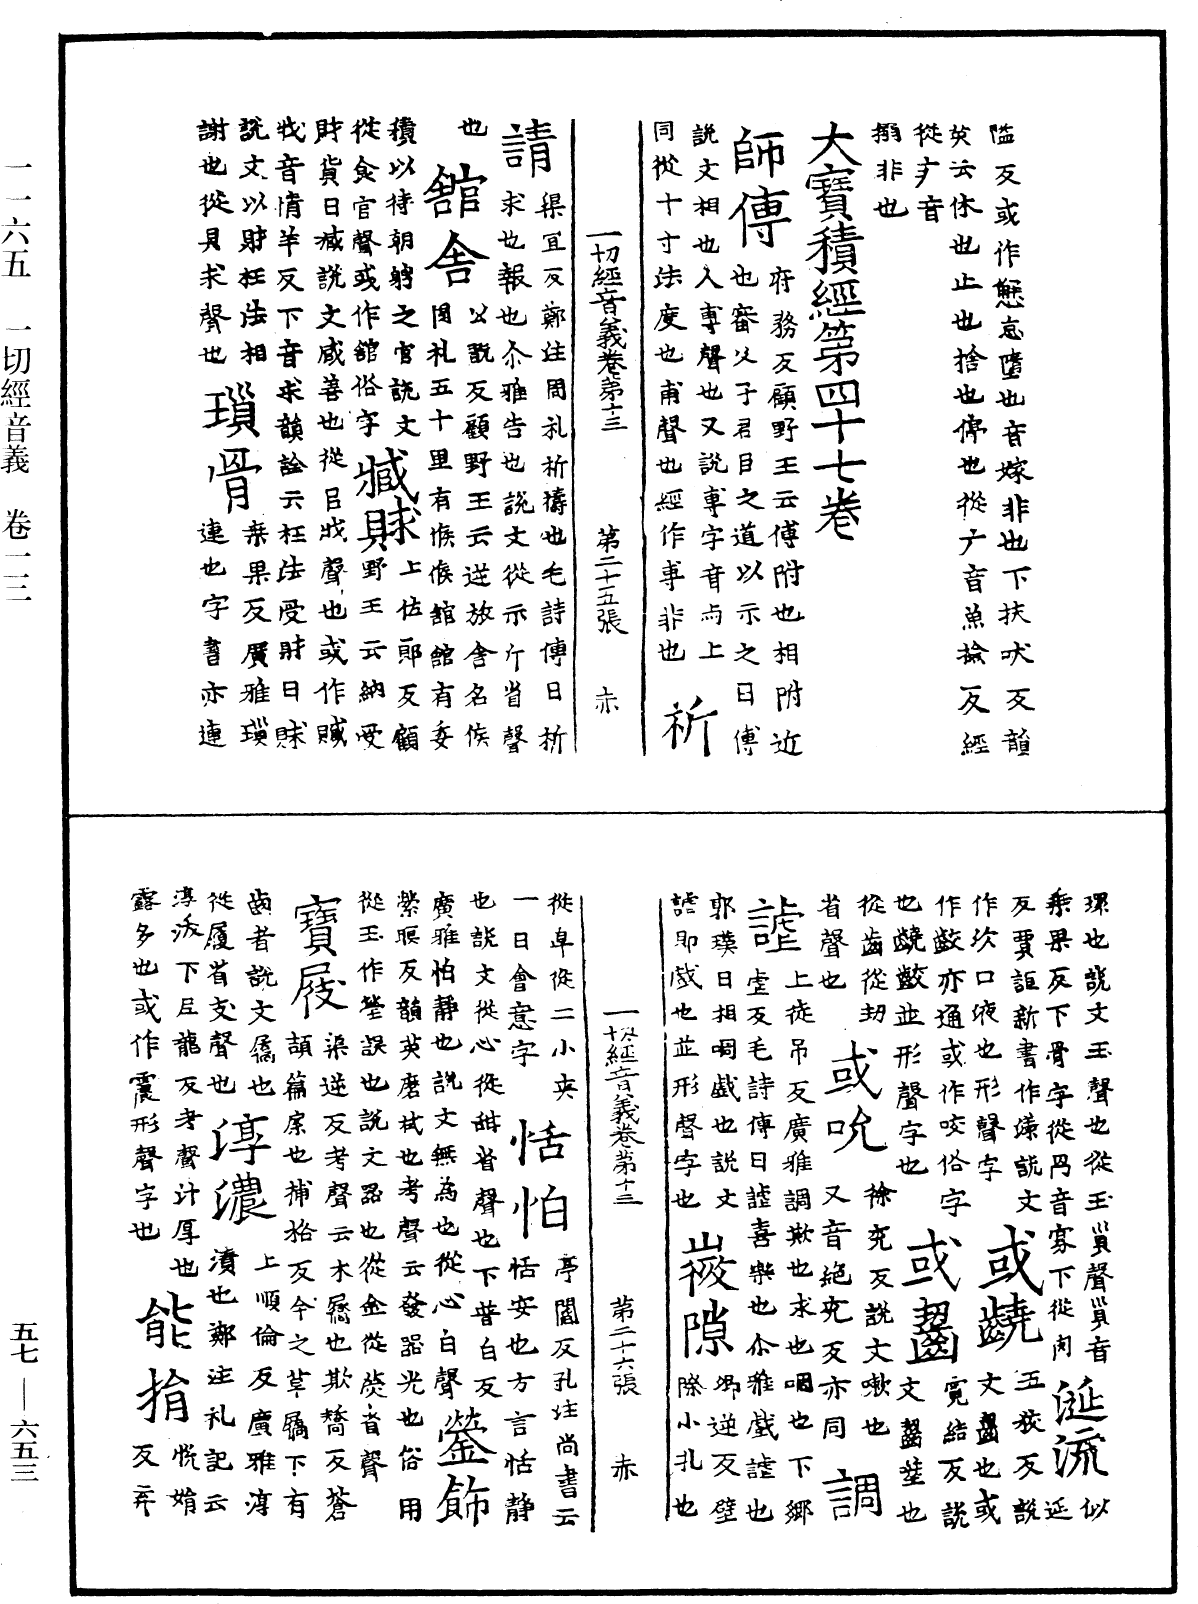 一一六五 一切經音義 卷一三
隘反或作㦬怠墮也音嫁非也下扶吠反韻
英云休也止也捨也停也從广音魚撿反經
從疒音
搦非也
大寶積經第四十七卷
師傅 府務反顧野王云傅附也相附近
也審父子君臣之道以示之曰傅
說文相也人専聲也又說専字音与上
同從十寸法度也甫聲也經作専非也 祈
一切經音義卷第十三 第二十五張 赤
請 渠宜反鄭注周礼祈禱也毛詩傳曰祈
求也報也尒雅告也說文從示斤省聲
也 舘舍 公翫反顧野王云逆放舍名候
周礼五十里有候候舘舘有委
積以待朝聘之官說文
從食官聲或作舘俗字 臧賕 上佐郎反顧
野王云納受
財貨曰臧說文臧善也從臣戕聲也或作贓
戕音情羊反下音求韻詮云枉法受財曰賕
說文以財枉法相
謝也從貝求聲也 瑣骨 桒果反廣雅瑣
連也字書亦連
環也說文玉聲也從玉𧴪聲𧴪音
桒果反下骨字從冎音寡下從肉 涎流 似
延
反賈誼新書作㳄說文
作㳄口液也形聲字 或齩 五狡反說
文齧也或
作齩亦通或作咬俗字
也齩齩並形聲字也 或齧 霓結反說
文齧噬也
從齒從㓞
省聲也 或吮 徐兖反說文嗽也
又音絕兖反亦同 調
謔 上徒吊反廣雅調欺也求也啁也下鄉
虐反毛詩傳曰謔喜樂也尒雅戲謔也
郭璞曰相啁戲也說文
謔即戲也並形聲字也 㠋隙 𡖖逆反壁
際小孔也
一切經音義卷第十三 第二十六張 赤
從阜從二小夾
一日會意字 恬怕 亭閻反孔注尚書云
恬安也方言恬静
也說文從心從甜省聲也下普白反
廣雅怕静也說文無為也從心白聲 鎣飾
縈暝反韻英磨栻也考聲云發器光也俗用
從玉作瑩誤也說文器也從金從熒省聲
寶屐 渠逆反考聲云木屩也欺嬌反蒼
頡篇屎也捕格反今之草屩下有
齒者說文屩也
從履省支聲也 淳濃 上順倫反廣雅淳
漬也鄭注礼記云
淳沃下𡰥龍反考聲汁厚也
露多也或作震形聲字也 能捐 恱娟
反弃
五七 — 六五三